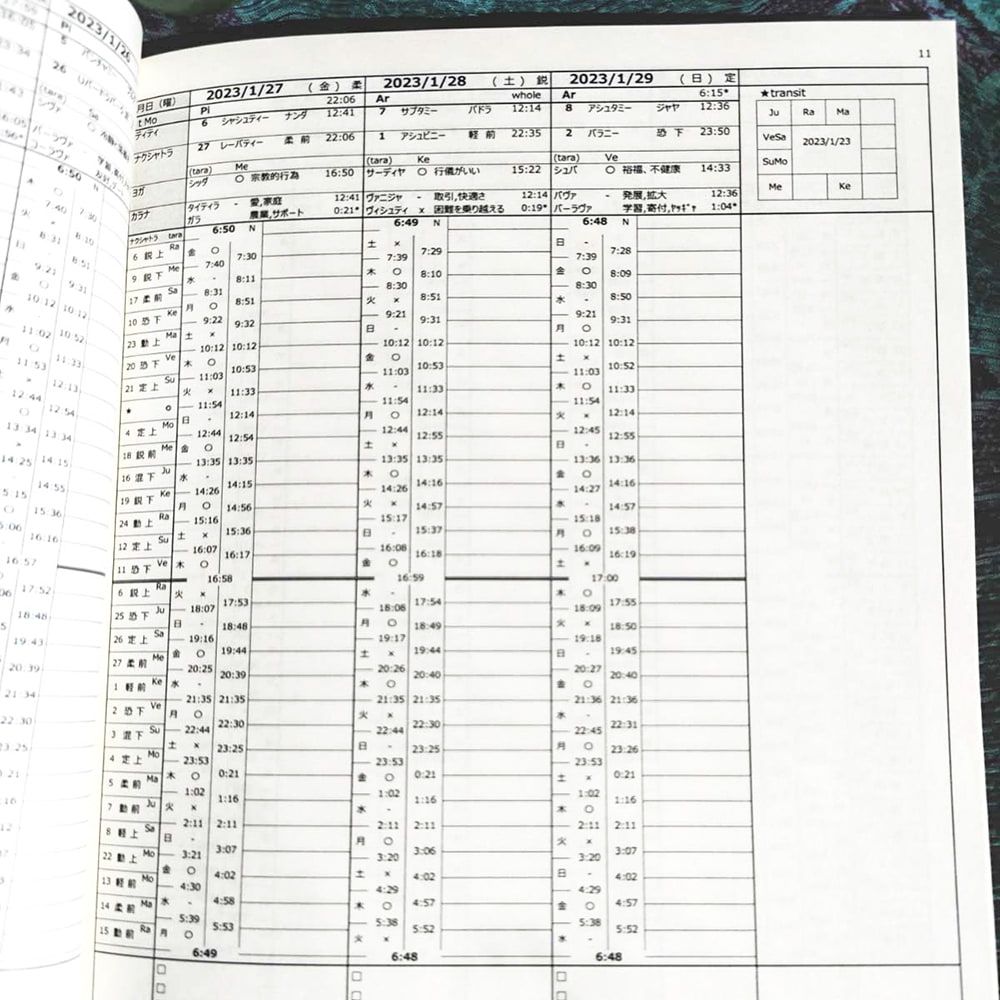 11
2023/1/26
2023/1/27 （金）柔 2023/1/28 （土）鋭 2023/1/29 （日）定
月日（曜） Pi 22:06 Ar whole Ar 6:15* ★transit
t Mo
ティティ 6 シャシュティー ナンダ 12:41 7 サプタミー バドラ 12:14 8 アシュタミー ジャヤ 12:36
ナクシャトラ 27 レーバティー 柔 前 22:06 1 アシュビニー 軽 前 22:35 2 バラニー 恐 下 23:50
(tara) Me (tara) Ke (tara) Ve
ヨガ シッダ ○ 宗教的行為 16:50 サーディヤ ○ 行儀がいい 15:22 シュバ ○ 裕福、不健康 14:33
カラナ タイティラ - 愛,家庭 12:41 ヴァニジャ - 取引,快適さ 12:14 バヴァ - 発展,拡大 12:36
ガラ 農業,サポート 0:21* ヴィシュティ × 困難を乗り越える 0:19* バーラヴァ 学習,寄付,ﾔｷﾞｬ 1:04*
Ju Ra Ma
VeSa 2023/1/23
SuMo
Me Ke
ナクシャトラ tara 6:50 N 6:49 N 6:48 N
6 鋭 上 Ra 金 ○ 7:30 土 × 7:29 日 - 7:28
7:40 7:39 7:39
9 鋭 下 Me 水 - 8:11 木 ○ 8:10 金 ○ 8:09
8:31 8:30 8:30
17 柔 前 Sa 月 ○ 8:51 火 × 8:51 水 - 8:50
9:22 9:21 9:21
10 恐 下 Ke 土 × 9:32 日 - 9:31 月 ○ 9:31
10:12 10:12 10:12 10:12 10:12 10:12
23 動 上 Ma 木 ○ 金 ○ 土 ×
20 恐 下 Ve 11:03 10:53 11:03 10:53 11:03 10:52
21 定 上 Su 火 × 11:33 水 - 11:33 木 ○ 11:33
11:54 11:54 11:54
★ o 日 - 12:14 月 ○ 12:14 火 × 12:14
12:44 12:54 12:44 12:55 12:45 12:55
4 定 上 Mo 金 ○ 土 × 日 -
18 鋭 前 Me 13:35 13:35 13:35 13:35 13:36 13:36
16 混 下 Ju 水 - 14:15 木 ○ 14:16 金 ○ 14:16
14:26 14:26 14:27
19 鋭 下 Ke 月 ○ 14:56 火 × 14:57 水 - 14:57
15:16 15:17 15:18
24 動 上 Ra 土 × 15:36 日 - 15:37 月 ○ 15:38
12 定 上 Su 16:07 16:17 16:08 16:18 16:09 16:19
11 恐 下 Ve 木 ○ 金 ○ 土 ×
16:58 16:59 17:00
6 鋭 上 Ra 火 × 17:53 水 - 17:54 木 ○ 17:55
18:07 18:08 18:09
25 恐 下 Ju 日 - 18:48 月 ○ 18:49 火 × 18:50
19:16 19:17 19:18
26 定 上 Sa 金 ○ 19:44 土 × 19:44 日 - 19:45
20:25 20:26 20:27
27 柔 前 Me 水 - 20:39 木 ○ 20:40 金 ○ 20:40
1 軽 前 Ke 21:35 21:35 21:35 21:35 21:36 21:36
2 恐 下 Ve 月 ○ 22:30 火 × 22:30 水 - 22:31
22:44 22:44 22:45
3 混 下 Su 土 × 23:25 日 - 23:25 月 ○ 23:26
4 定 上 Mo 23:53 23:53 23:53
5 柔 前 Ma 木 ○ 0:21 金 ○ 0:21 土 × 0:21
1:02 1:02 1:02
7 動 前 Ju 火 × 1:16 水 - 1:16 木 ○ 1:16
2:11 2:11 2:11 2:11 2:11 2:11
8 軽 上 Sa 日 - 3:07 月 ○ 3:06 火 × 3:07
3:21 3:20 3:20
22 動 上 Mo 金 ○ 4:02 土 × 4:02 日 - 4:02
13 軽 前 Mo 4:30 4:29 4:29
14 柔 前 Ma 水 - 4:58 木 ○ 4:57 金 ○ 4:57
5:39 5:38 5:38
15 動 前 Ra 月 ○ 5:53 火 × 5:52 水 - 5:52
6:49 6:48 6:48